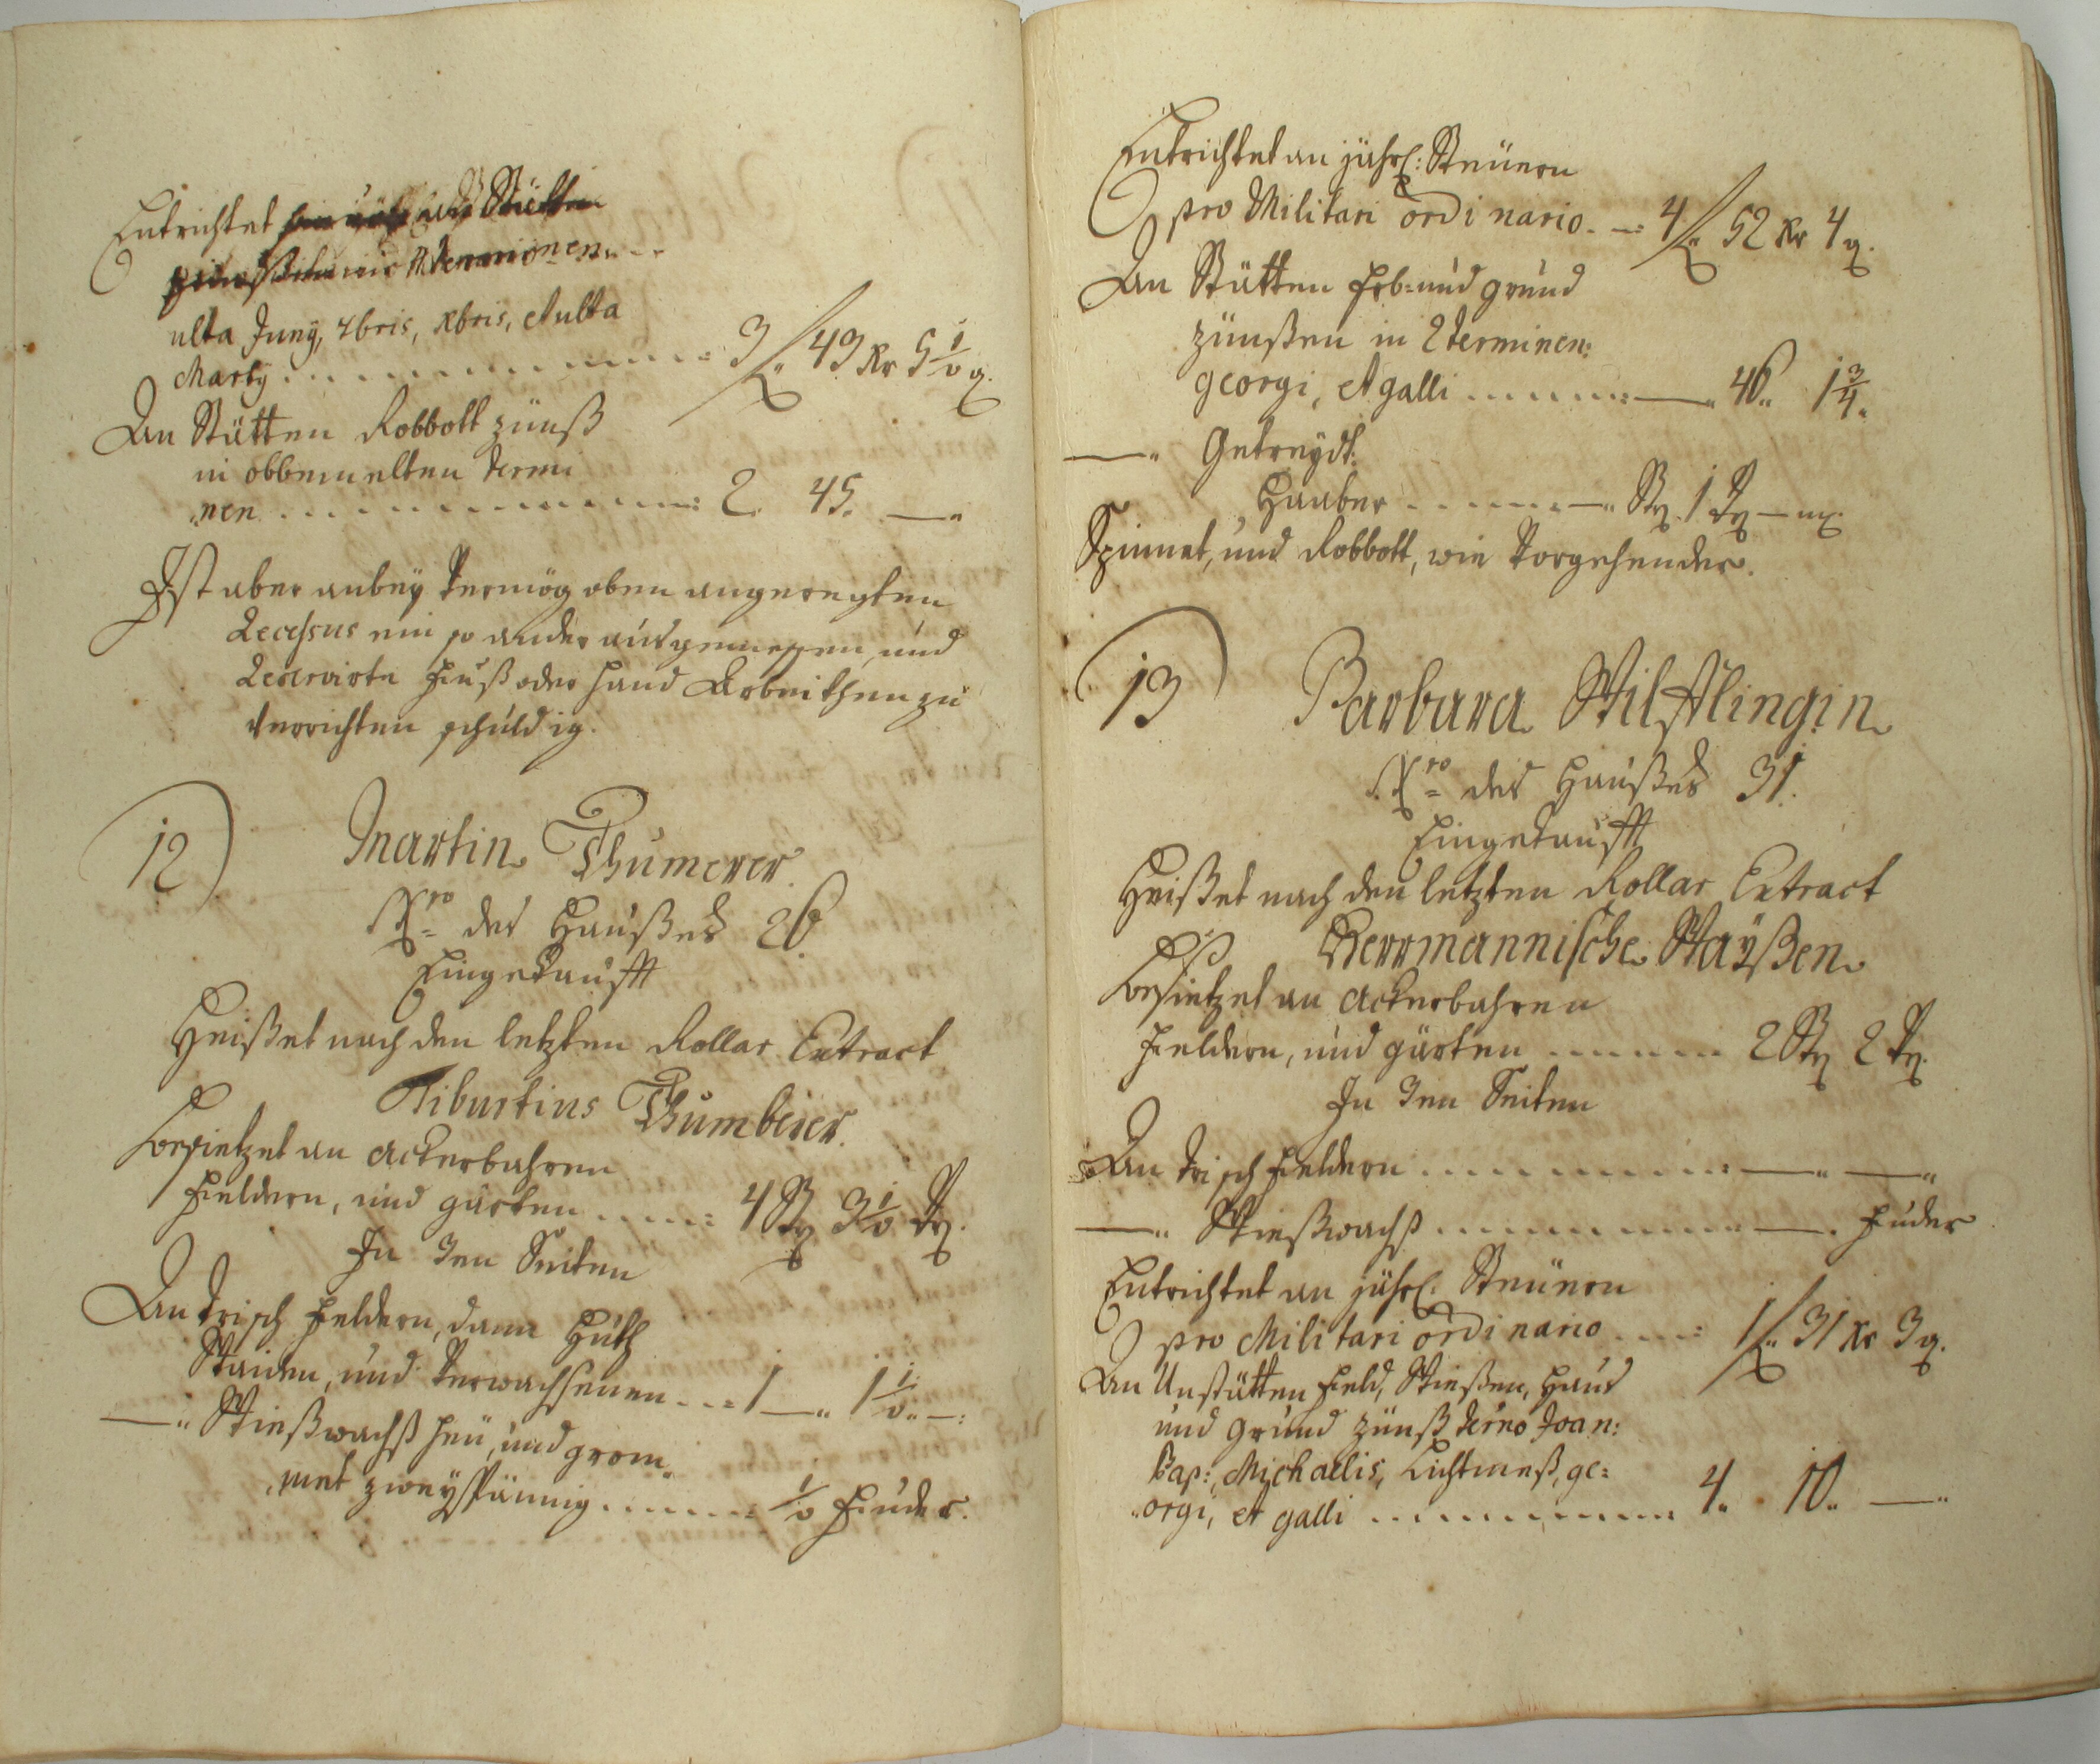 Entrichtet
ulta Junÿ, 7bris, Xbris, et ulta
Martÿ . . . . . . . . . . . 3 f 43 Kr 5 1/2 d.
An Stätten Robbott zünß
in obbemelten Termi
nen . . . . . . . . . . . . : 2. 45. —
Ist aber anbeÿ Vermög oben angeregten
Recessus ein so ander ausgemeßen, und
Reservirte Fuß oder Hand Arbeithen zu
Verrichten schuldig.
12) Martin Thumerer.
Nro des Haußes 26.
Eingekaufft
Heißet nach den letzten Rollar Extract
Tiburtius Thumberer.
Besietzet an Ackerbahren
Feldern, und gärten . . . . . : 4 Str 3 1/2 Vr.
In 3en Seiten
An Trisch Feldern, dann Huth
Waiden, und Verwachsenen . . . : 1 — 1 1/2 —:
—" Wießwachß heü, und grom„
„met zweÿspännig . . . . . . : 1/2 Fuder.
Entrichtet an jährl: Steüern
pro Militari ordinario. —: 4 f 52 Kr 4 d.
An Stätten Erb= und grund
zünßen in 2 Terminen:
georgi, et galli . . . . . . . : —" 46. 1 3/4.
—" Getreÿdt:
Haaber . . . . . . . —" Str. 1 Vr — mx.
Spinnet, und Robbott, wie Vorgehender.
13) Barbara Wilfflingin
Nro des Haußes 31.
Eingekaufft
Heißet nach den letzten Rollar Extract
Herrmannische Waÿßen
Besietzet an Ackerbahren
Feldern, und gärten . . . . . . 2 Str 2 Vr.
In 3en Seiten
An Trisch Feldern . . . . . . . . . . : —" —"
—" Wießwachß . . . . . . . . . . . —. Fuder
Entrichtet an jährl: Steüern
pro Militari ordinario . . . : 1 f 31 Kr 3 d.
An Unstätten Feld, Wießen, Haus
und Grund zünß Termo Joan:
Bap:, Michaelis, Lichtmeß, ge:
„orgi, et galli . . . . . . . . . . : 4. 10. —"